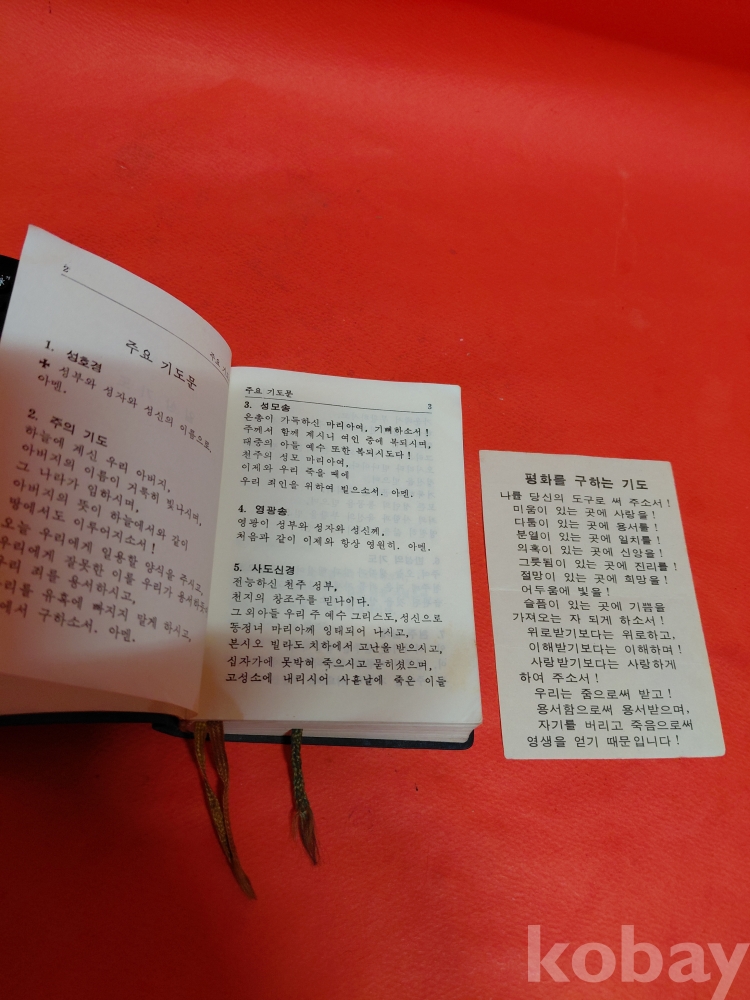 2
주요 기
주요 기도문
1. 성호경
✚ 성부와 성자와 성신의 이름으로.
아멘.
2. 주의 기도
하늘에 계신 우리 아버지,
아버지의 이름이 거룩히 빛나시며,
그 나라가 임하시며,
아버지의 뜻이 하늘에서와 같이
땅에서도 이루어지소서!
오늘 우리에게 일용할 양식을 주시고,
우리에게 잘못한 이를 우리가 용서하
우리 죄를 용서하시고,
우리를 유혹에 빠지지 말게 하시고,
에서 구하소서. 아멘.
주요 기도문 3
3. 성모송
은총이 가득하신 마리아여, 기뻐하소서!
주께서 함께 계시니 여인 중에 복되시며,
태중의 아들 예수 또한 복되시도다!
천주의 성모 마리아여,
이제와 우리 죽을 때에
우리 죄인을 위하여 빌으소서. 아멘.
4. 영광송
영광이 성부와 성자와 성신께,
처음과 같이 이제와 항상 영원히. 아멘.
5. 사도신경
전능하신 천주 성부,
천지의 창조주를 믿나이다.
그 외아들 우리 주 예수 그리스도, 성신으로
동정녀 마리아께 잉태되어 나시고,
본시오 빌라도 치하에서 고난을 받으시고,
십자가에 못박혀 죽으시고 묻히셨으며,
고성소에 내리시어 사흗날에 죽은 이들
평화를 구하는 기도
나를 당신의 도구로 써 주소서!
미움이 있는 곳에 사랑을!
다툼이 있는 곳에 용서를!
분열이 있는 곳에 일치를!
의혹이 있는 곳에 신앙을!
그릇됨이 있는 곳에 진리를!
절망이 있는 곳에 희망을!
어두움에 빛을!
슬픔이 있는 곳에 기쁨을
가져오는 자 되게 하소서!
위로받기보다는 위로하고,
이해받기보다는 이해하며!
사랑받기보다는 사랑하게
하여 주소서!
우리는 줌으로써 받고!
용서함으로써 용서받으며,
자기를 버리고 죽음으로써
영생을 얻기 때문입니다!
kobay